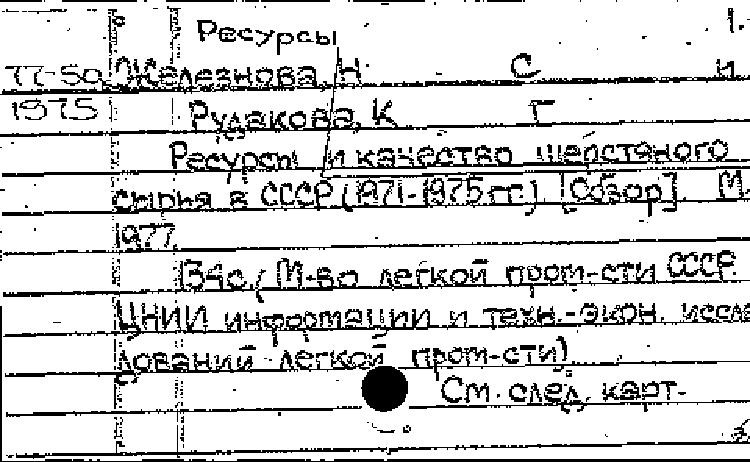 Ресурсы 1.
77-50 Железнова, Н С и
1975 Рудакова, К Г
Ресурсы и качество шерстяного
сырья в СССР (1971-1975 гг.) [Обзор] М.
1977
34с. (М-во легкой пром-сти СССР.
ЦНИИ информации и техн.-экон. иссле
дований легкой пром-сти)
См. след. карт-